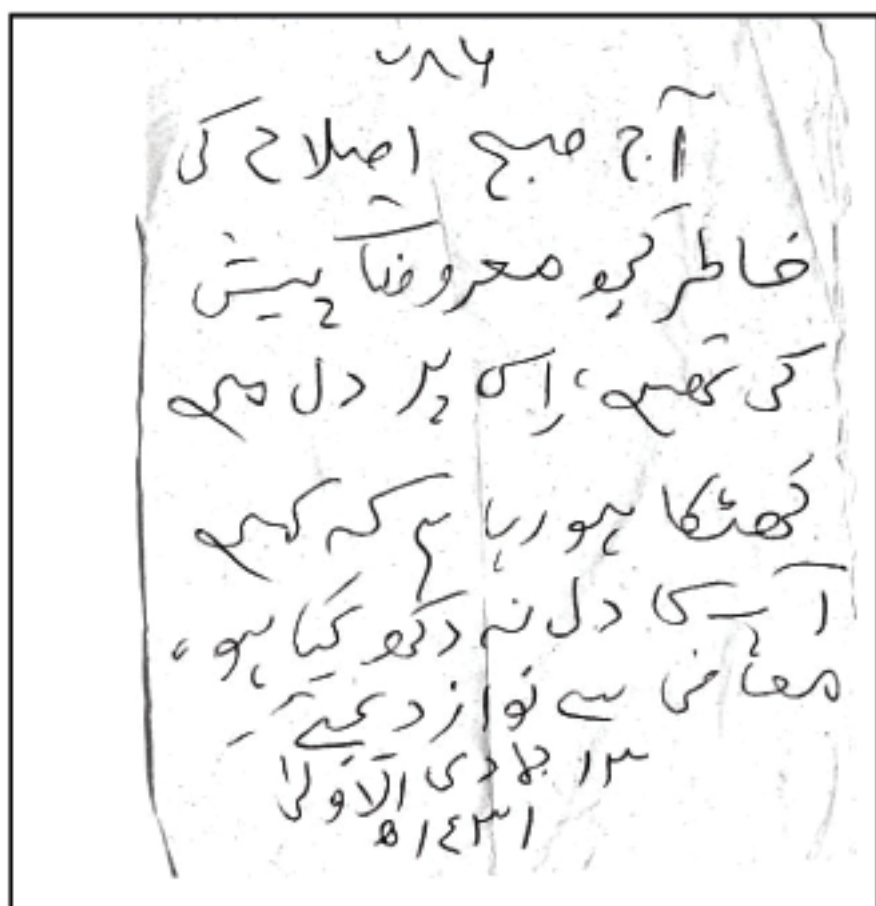 ۷۸۶
آج صبح اِصلاح کی
خاطر کچھ معروضات پیش
کی تھیں، اِس پر دل میں
کھٹکا ہو رہا ہے کہ کہیں
آپ کا دل نہ دُکھ گیا ہو،
معافی سے نواز دیجئے
۱۳ جمادی الاولیٰ
۱۴۳۱ھ